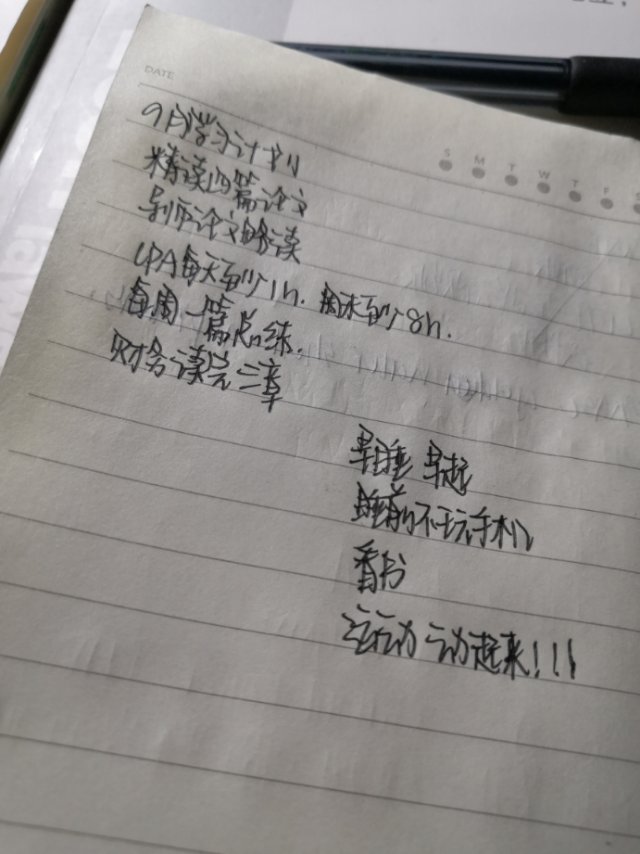 DATE
S M T W T F S
9月学习计划
精读四篇论文
别的论文略读
CPA每天至少1h. 周末至少8h.
每周一篇总结.
财务读完三章
早睡 早起
睡前不玩手机
看书
运动 动起来!!!